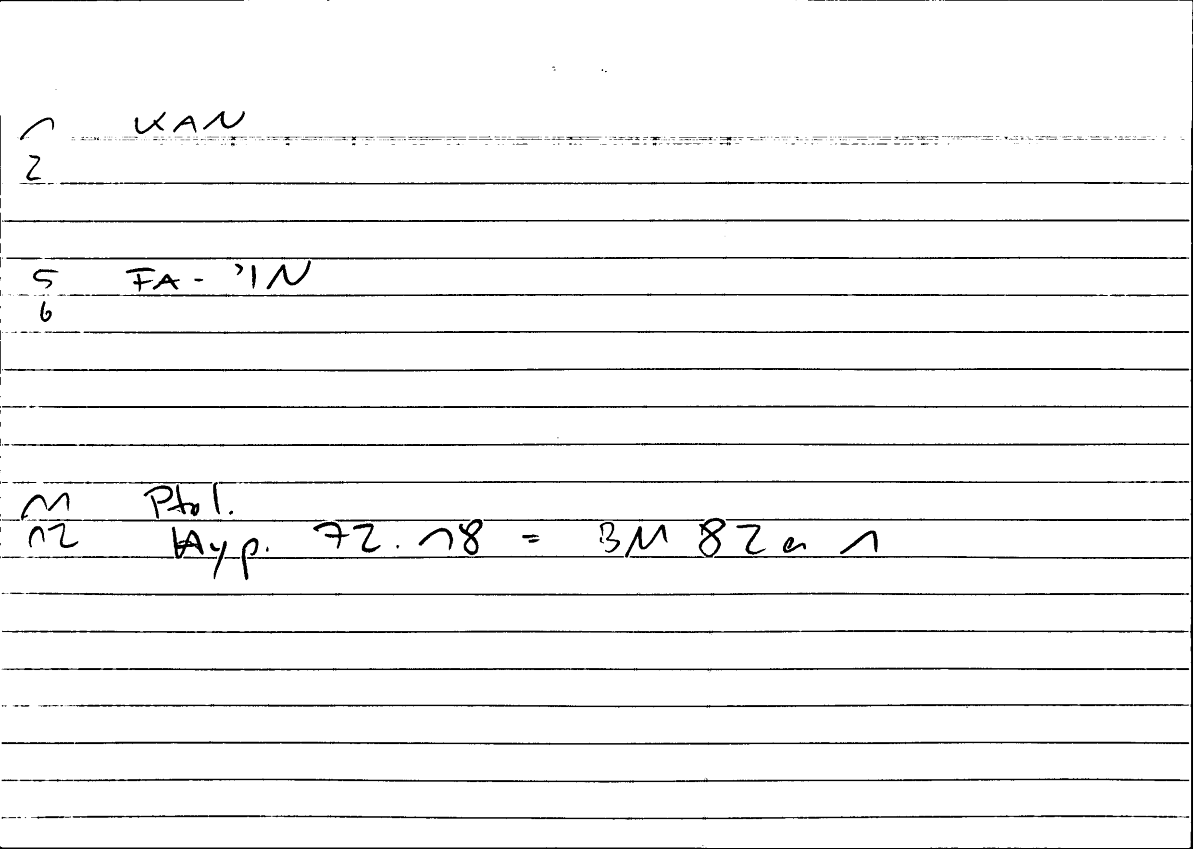 1 KAN
2
5 FA - 'IN
6
11 Ptol.
12 Hyp. 72.18 = BM 82a 1